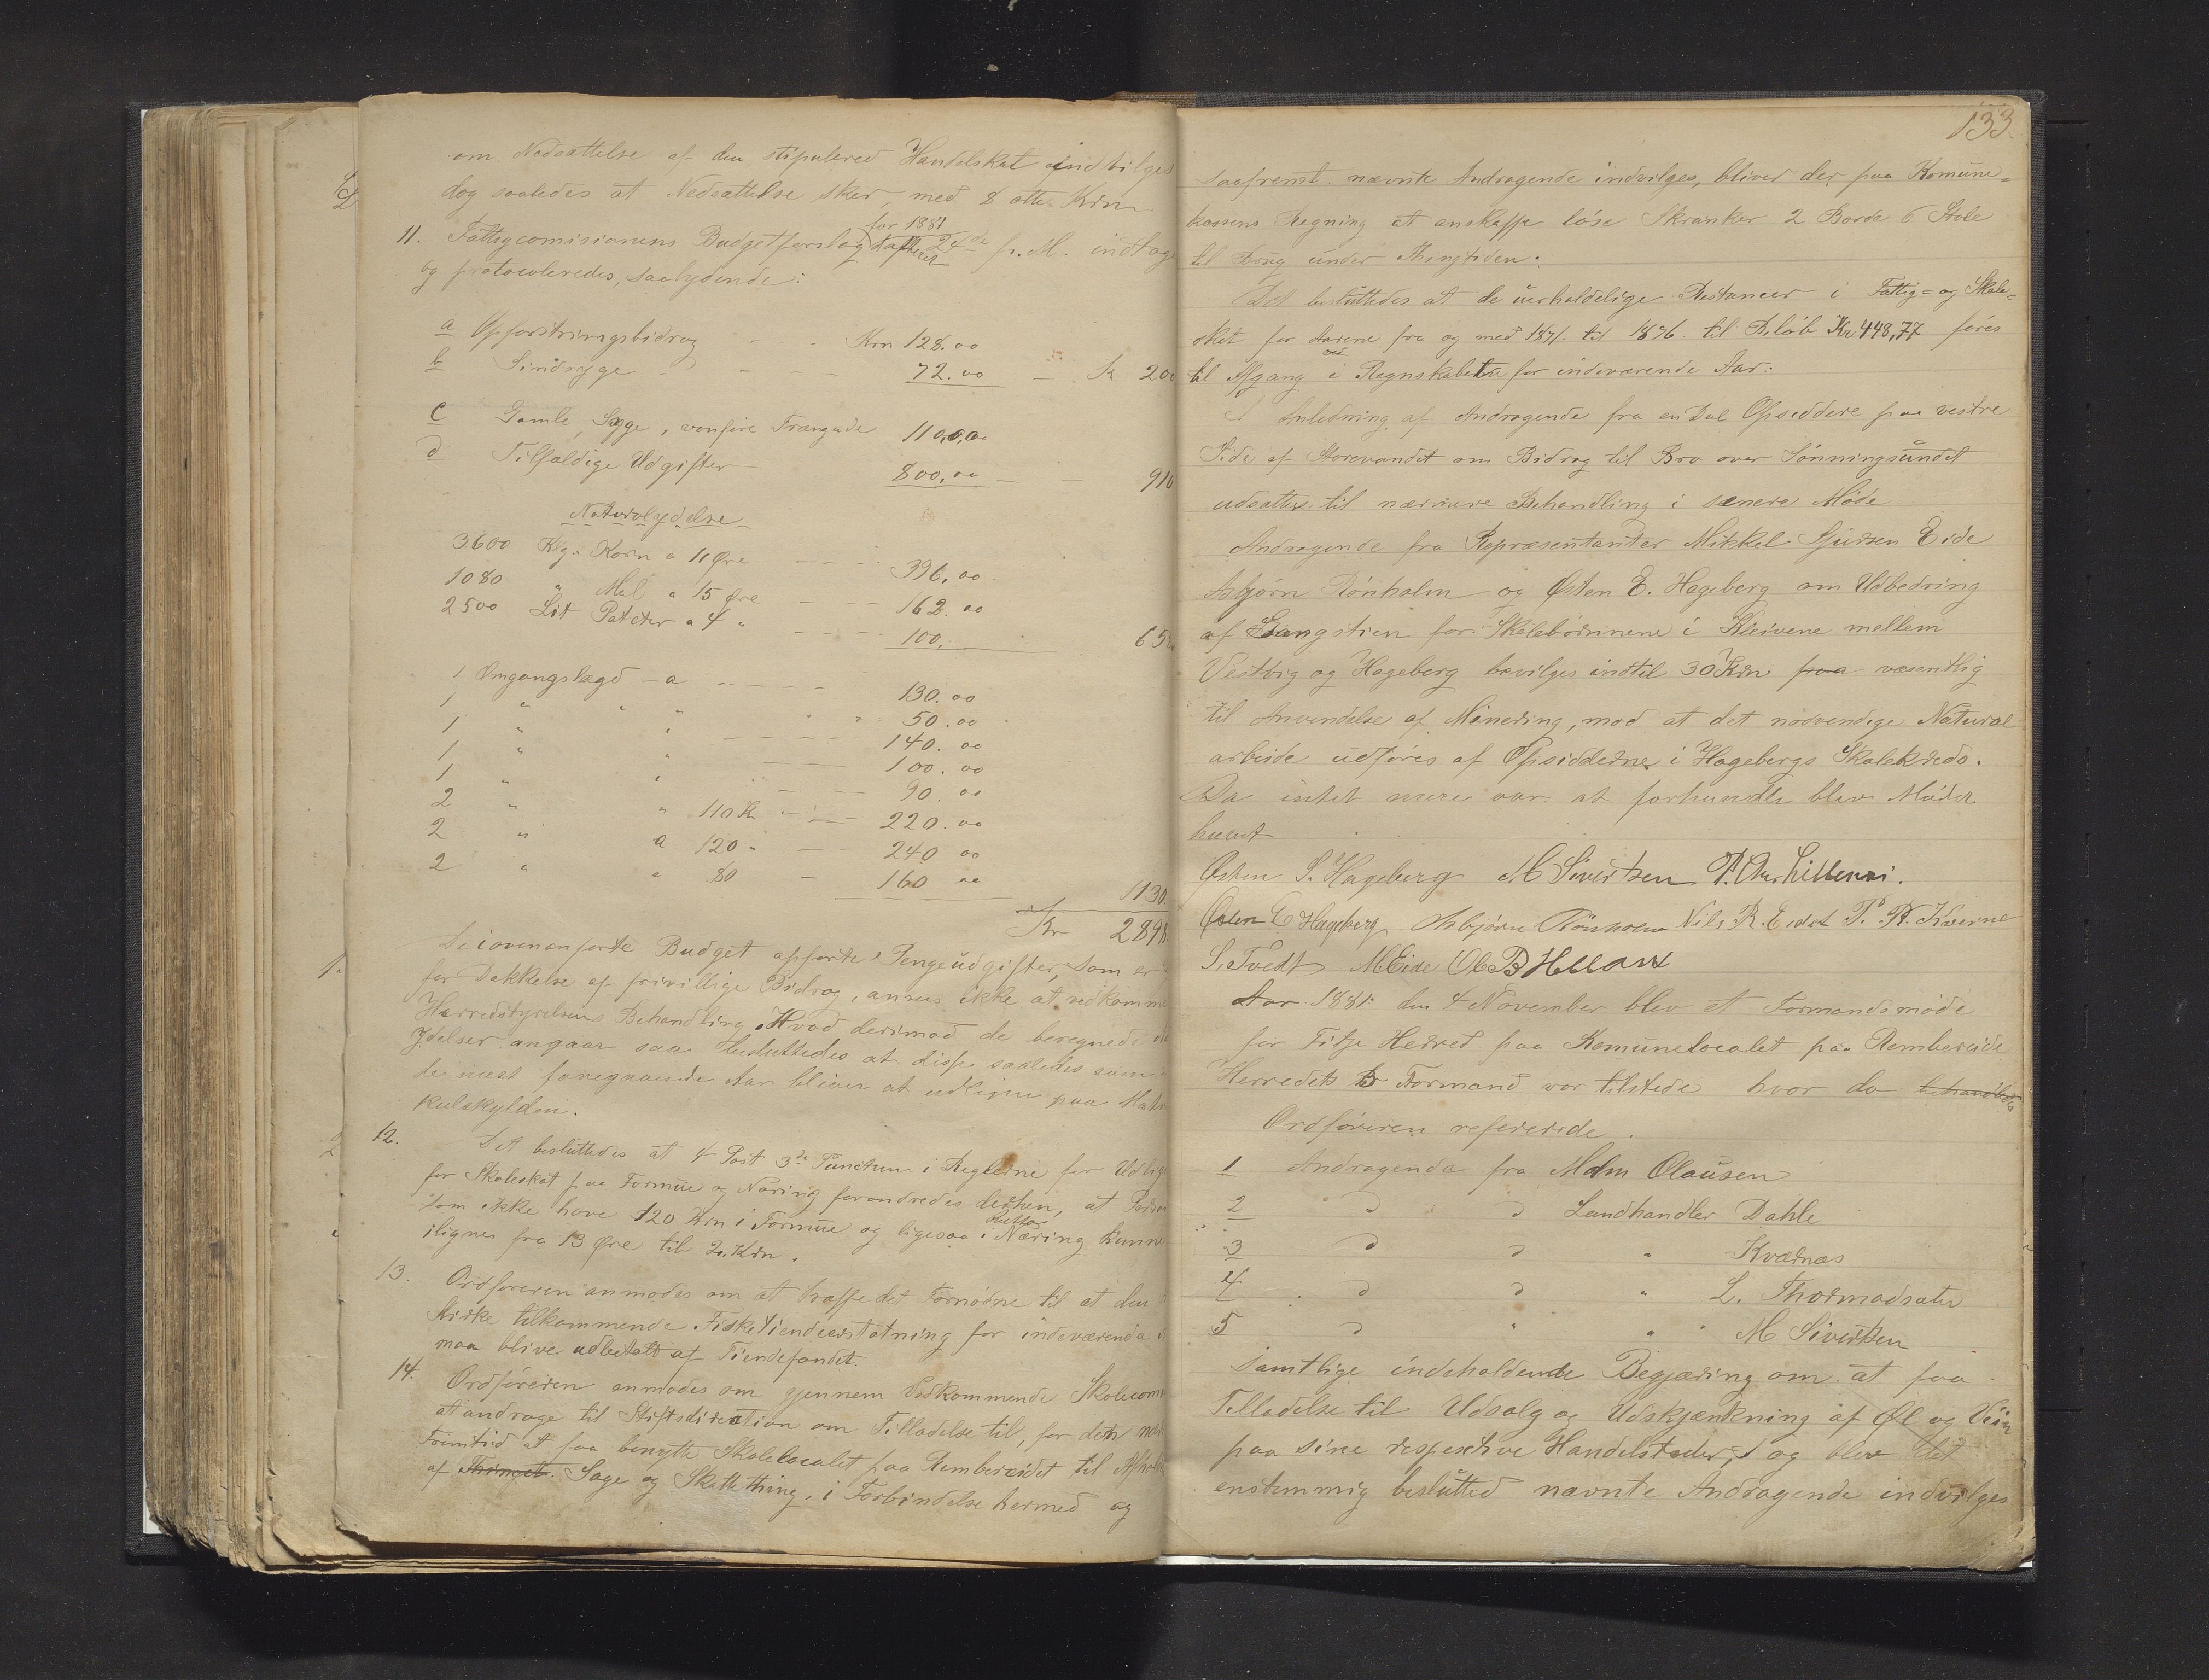 om Nedsættelse af den stipulered Handelskat indvilges
dog saaledes at Nedsættelse sker, med 8 otte Krn
for 1881
11. Fattigcomisionens Budgetforslag 24de f. M. indtoges
og protocoleredes, saalydende:
a Opfostringsbidrag - - - Krn 128.00
b Sindsyge - - - - 72.00 - K 200
c Gamle, Syge, vanføre Trængende 110,00
d Tilfældige Udgifter 800,00 - - 910
Naturalydelse
3600 Klg. Korn a 11 Øre - - - 396,00
1080 " Mel a 15 Øre - - - 162.00
2500 Lit Poteter a 4 " - - - 100, 658
1 Omgangslægd - a - - - - 130.00
1 " " " " " 50.00
1 " " - - - - 140.00
1 " " - - - 100.00
1 " " " - - 90.00
2 " " 110 Kr - - 220.00
2 " a 120 " - - 240 00
2 " " 80 - 160 00
1130
Kr 2898
De i ovenanførte Budget opførte Pengeudgifter, som er
for Dækkelse af frivillige Bidrag, ansees ikke at vedkomme
Herredstyrelsens Behandling. Hvad derimod de beregnede
Ydelser angaar saa besluttedes at disse saaledes som
de næst foregaaende Aar bliver at udligne paa Matri
kulskylden.
12. Det besluttedes at 4 Post 3de Punctum i Reglerne for Udlig
for Skoleskat paa Formue og Næring forandredes derhen, at Perso
som ikke have 120 Krn i Formue og ligesaa i Næring kunne
netto
ilignes fra 13 Øre til 2. Krn.
13. Ordføreren anmodes om at træffe det Fornødne til at den
Kirke tilkommende Fisketiendeerstatning for indeværende
maa blive udbetalt af Tiendefondet.
14. Ordføreren anmodes om gjennem Vedkommende Skolecom
at andrage til Stiftsdirection om Tilladelse til, for den
Fremtid at faa benytte Skolelocalet paa Rembereidet til Afhold
af Sage og Skattething, i Forbindelse hermed og
133.
saafremt nævnte Andragende indvilges, bliver der paa Komune-
kassens Regning at anskaffe løse Skranker 2 Borde 6 Stole
til Brug under Thingtiden.
Det besluttedes at de uerholdelige Restancer i Fattig- og Skole-
skat for Aarene fra og med 1871. til 1876. til Beløb Kr 448,77 føres
til Afgang i Regnskabet for indeværende Aar.
I Anledning af Andragende fra en Del Opsiddere paa vestre
Side af Storevandet om Bidrag til Bro over Sønningsundet
udsattes til nærmere Behandling i senere Møde
Andragende fra Repræsentanter Mikkel Sjursen Eide
Asbjørn Rønholm og Østen E. Hageberg om Udbedring
af Gangstien for Skolebørnene i Kleivene mellem
Vestvig og Hageberg bevilges indtil 30 Krn paa væsentlig
til Anvendelse af Minering, mod at det nødvendige Natural
arbeide udføres af Opsidderne i Hagebergs Skolekreds.
Da intet mere var at forhandle blev Mødet
hævet
Østen S. Hageberg M Sivertsen P. Chr. Lillenæs.
Østen E Hageberg Asbjørn Rönholm Nils R. Eidet P. R. Kverne
S. Tvedt M Eide Ole B Helland
Aar 1881. den 4 November blev et Formandsmøde
for Fitje Herred paa Komunelocalet paa Rembereide
Herredets Formænd var tilstede hvor da behandledes
Ordføreren refererede.
1 Andragende fra Malm Olausen
2 " " Landhandler Dahle
3 " " " Kværnæs
4 " " " L. Thormodsæter
5 " " " M Sivertsen
samtlige indeholdende Begjæring om at faa
Tilladelse til Udsalg og Udskjænkning af Øl og Viin
paa sine respective Handelsteder, og blev det
enstemmig beslutted nævnte Andragende indvilges